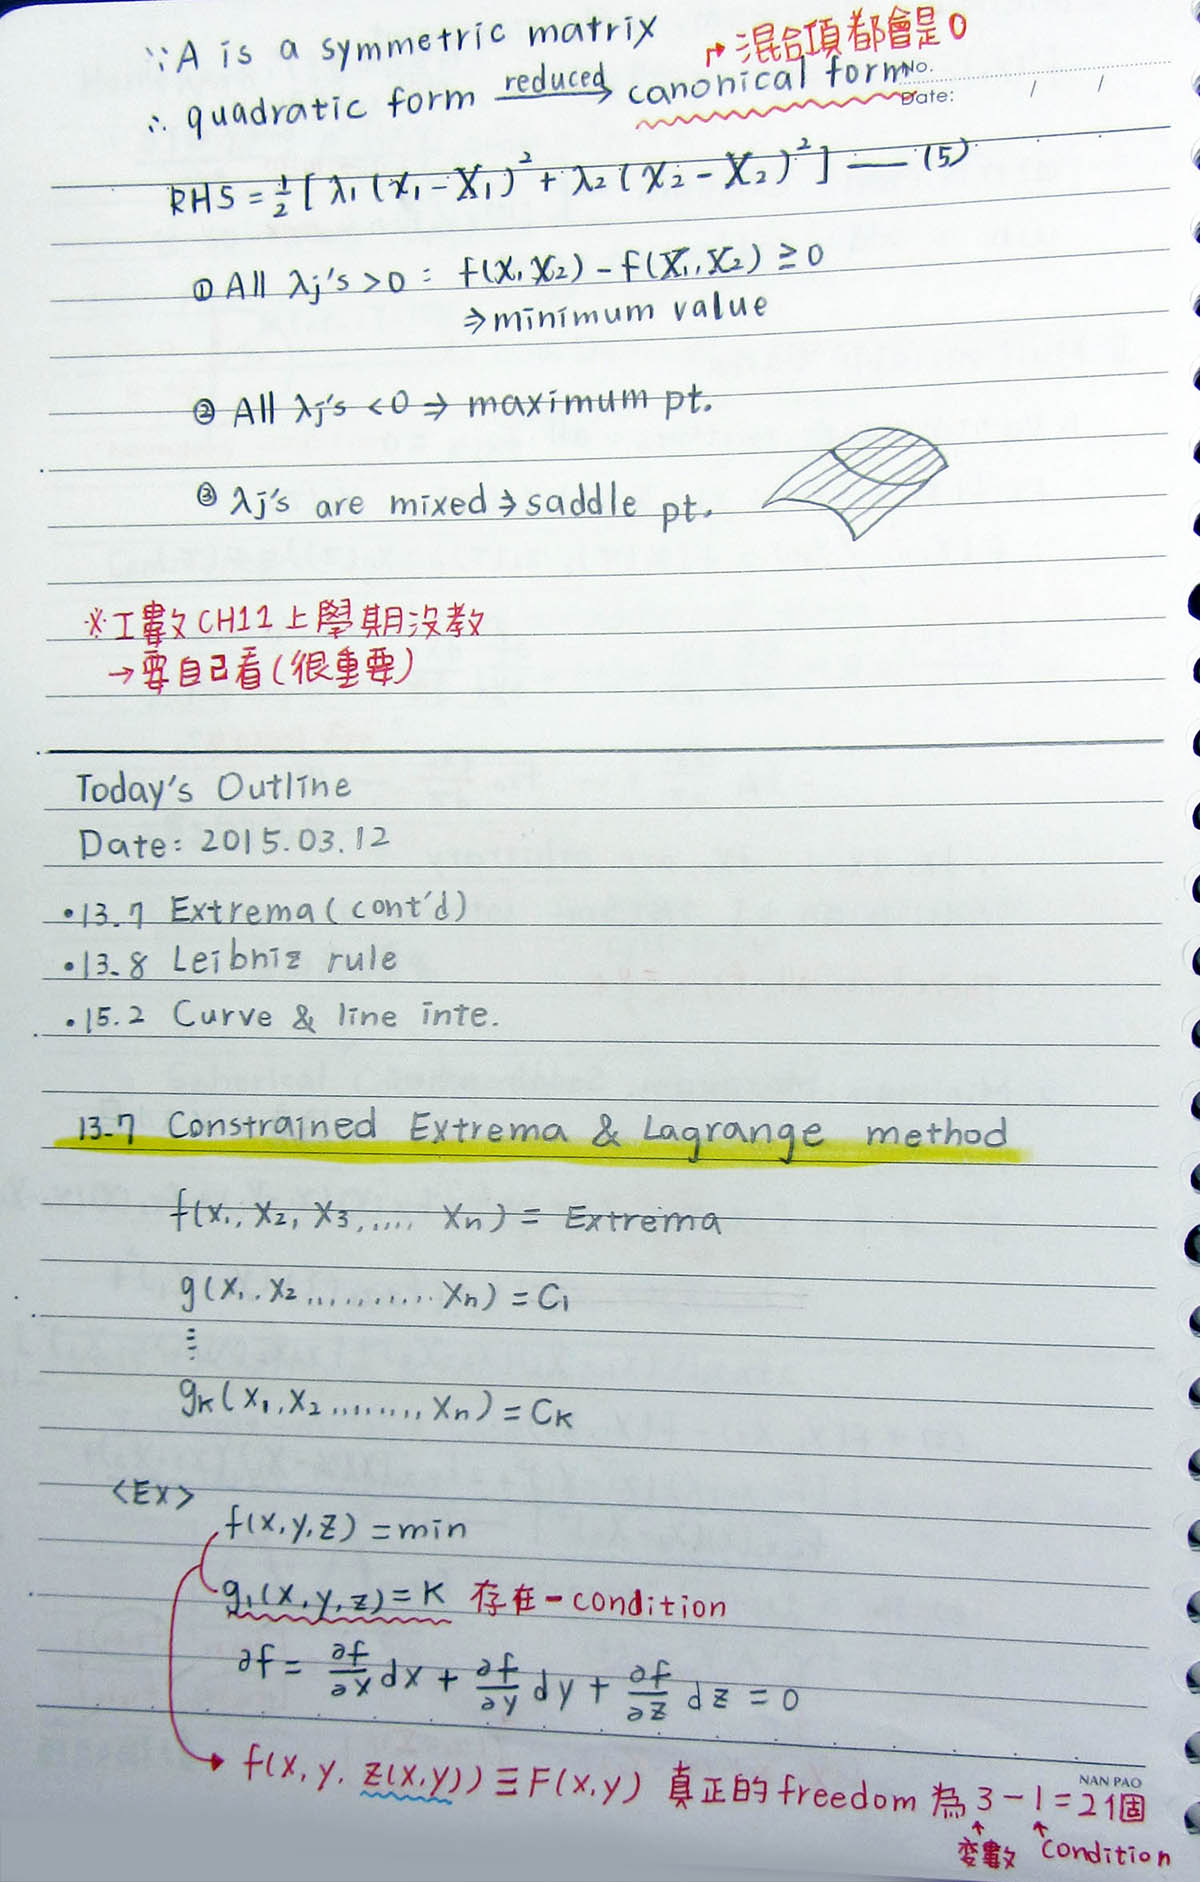 ∵A is a symmetric matrix
→混合項都會是0
∴ quadratic form reduced→ canonical form
No.
Date: / /
RHS = 1/2 [ λ1 (x1 - X1)² + λ2 (x2 - X2)² ] — (5)
① All λj's > 0 : f(x1, x2) - f(X1, X2) ≥ 0
⇒ minimum value
② All λj's < 0 ⇒ maximum pt.
③ λj's are mixed ⇒ saddle pt.
※工數CH11上學期沒教
→要自己看(很重要)
Today's Outline
Date: 2015.03.12
•13.7 Extrema (cont'd)
•13-8 Leibniz rule
•15.2 Curve & line inte.
13-7 Constrained Extrema & Lagrange method
f(x1, x2, x3, .... xn) = Extrema
g(x1, x2 ........... xn) = C1
⋮
gK(x1, x2 ........, xn) = CK
<Ex>
f(x, y, z) = min
g1(x, y, z) = K 存在一condition
∂f = ∂f/∂x dx + ∂f/∂y dy + ∂f/∂z dz = 0
→ f(x, y, z(x,y)) ≡ F(x,y) 真正的freedom 為 3 - 1 = 2個
NAN PAO
↑變數 ↑condition